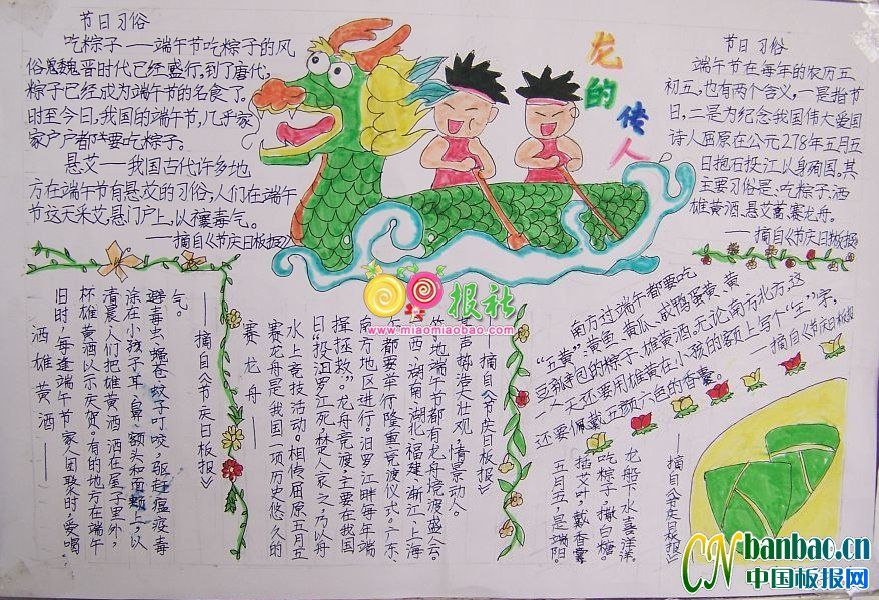 节日习俗
吃粽子——端午节吃粽子的风
俗魏晋时代已经盛行,到了唐代,
粽子已经成为端午节的名食了。
时至今日,我国的端午节,几乎家
家户户都要吃粽子。
悬艾——我国古代许多地
方在端午节有悬艾的习俗,人们在端午
节这天采艾悬门户上,以禳毒气。
——摘自《节庆日板报》
龙的传人
节日习俗
端午节在每年的农历五
初五,也有两个含义,一是指节
日,二是为纪念我国伟大爱国
诗人屈原在公元278年五月五
日抱石投江以身殉国。其
主要习俗是、吃粽子、洒
雄黄酒、悬艾蒿、赛龙舟。
——摘自《节庆日板报》
报社
www.miaomiaobao.com
洒雄黄酒——
旧时,每逢端午节家人团聚时,爱喝
杯雄黄酒以示庆贺,有的地方在端午
清晨,人们把雄黄酒洒在屋子里外,
涂在小孩子耳、鼻、额头和面颊上,以
避毒虫、蝇苍蚊子叮咬,驱赶瘟疫毒
气。
——摘自《节庆日板报》
赛龙舟——
赛龙舟是我国一项历史悠久的
水上竞技活动。相传屈原五月五
日“投汨罗江死,楚人哀之,乃以舟
择拯救”。龙舟竞渡主要在我国
南方地区进行。汨罗江畔每年端
午都要举行隆重竞渡仪式。广东、
西、湖南、湖北、福建、浙江、上海
等地端午节都有龙舟竞渡盛会。
其声势浩大壮观,情景动人。
摘自《节庆日板报》
南方过端午都要吃
“五黄”:黄鱼、黄瓜、咸鸭蛋黄、黄
豆制包的粽子、雄黄酒。无论南方北方,这
一天还要用雄黄在小孩的额上写个“王”字,
还要佩戴五颜六色的香囊。
——摘自《节庆日板报》
五月五,是端阳。
插艾叶,戴香囊。
吃粽子,撒白糖。
龙船下水喜洋洋。
——摘自《节庆日板报》
CN banbao.cn
中国板报网